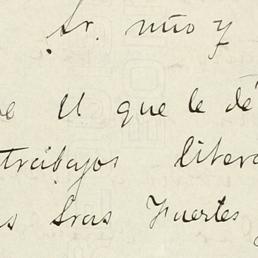 Sr. mío y
e U que le dé
trabajos litera
s Sras Fuertes